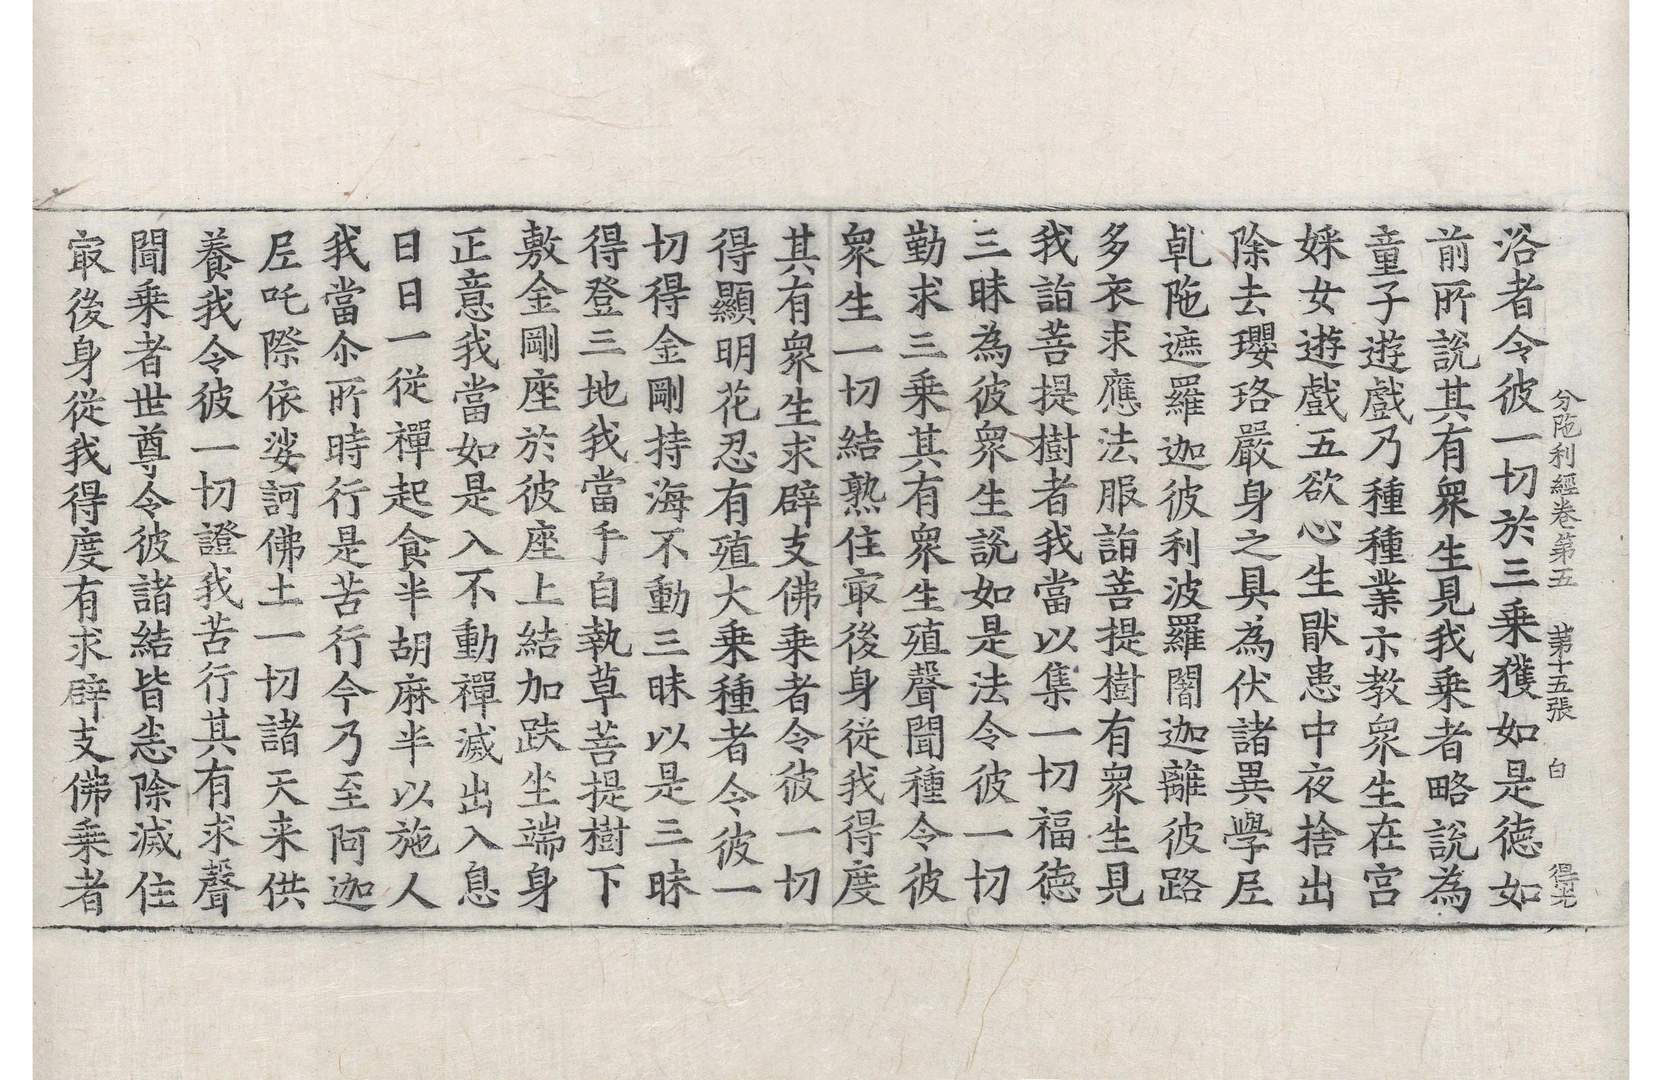 分陁利經卷第五 第十五張 白 得光
浴者令彼一切於三乗獲如是德如
前所說其有衆生見我乗者略說為
童子遊戲乃種種業示教衆生在宫
婇女遊戲五欲心生厭患中夜捨出
除去瓔珞嚴身之具為伏諸異學𡰱
乹陁遮羅迦彼利波羅闍迦離彼路
多衣求應法服詣菩提樹有衆生見
我詣菩提樹者我當以集一切福德
三昧為彼衆生說如是法令彼一切
勤求三乗其有衆生殖聲聞種令彼
衆生一切結熟住㝡後身從我得度
其有衆生求辟支佛乗者令彼一切
得顯明花忍有殖大乗種者令彼一
切得金剛持海不動三昧以是三昧
得登三地我當手自執草菩提樹下
敷金剛座於彼座上結加趺坐端身
正意我當如是入不動禪滅出入息
日日一從禪起食半胡麻半以施人
我當尒所時行是苦行今乃至阿迦
𡰱吒際依娑訶佛土一切諸天来供
養我令彼一切證我苦行其有求聲
聞乗者世尊令彼諸結皆悉除滅住
㝡後身從我得度有求辟支佛乗者